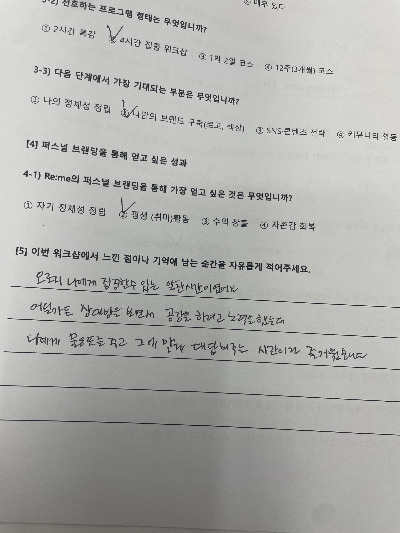 ④ 매우 있다
3-2) 선호하는 프로그램 형태는 무엇입니까?
① 2시간 특강 ② 4시간 집중 워크샵 ③ 1박 2일 코스 ④ 12주(3개월) 코스
3-3) 다음 단계에서 가장 기대되는 부분은 무엇입니까?
① 나의 정체성 정립 ② 나만의 브랜드 구축(로고, 색상) ③ SNS·콘텐츠 전략 ④ 커뮤니티 활동
[4] 퍼스널 브랜딩을 통해 얻고 싶은 성과
4-1) Re:me의 퍼스널 브랜딩을 통해 가장 얻고 싶은 것은 무엇입니까?
① 자기 정체성 정립 ② 평생 (취미)활동 ③ 수익 창출 ④ 자존감 회복
[5] 이번 워크샵에서 느낀 점이나 기억에 남는 순간을 자유롭게 적어주세요.
오로지 나에게 집중할수 있는 시간이었네요
상대방을 보면서 공감을 하려고 노력을 했는데
나에게 물음표를 주고 그에 맞게 대답해주는 시간이 즐거웠습니다